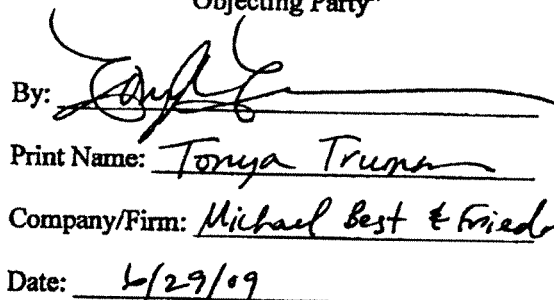 Objecting Party"
By:
Print Name: Tonya Truman
Company/Firm: Michael Best & Fried
Date: 6/29/09